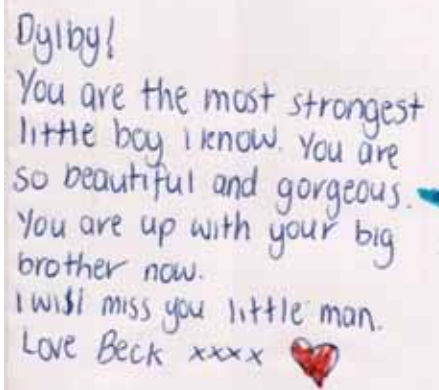 Dylby!
You are the most strongest
little boy i know. You are
so beautiful and gorgeous.
You are up with your big
brother now.
i will miss you little man.
Love Beck xxxx